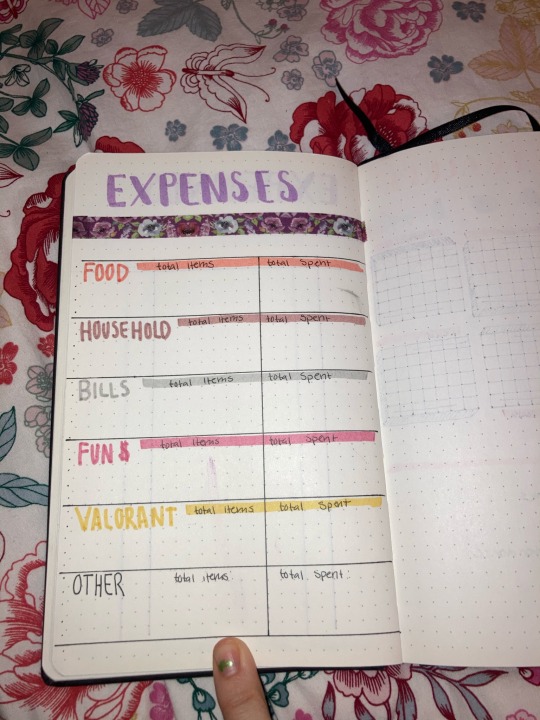 EXPENSES
FOOD total items total spent
HOUSEHOLD total items total spent
BILLS total items total spent
FUN $ total items total spent
VALORANT total items total spent
OTHER total items: total spent: